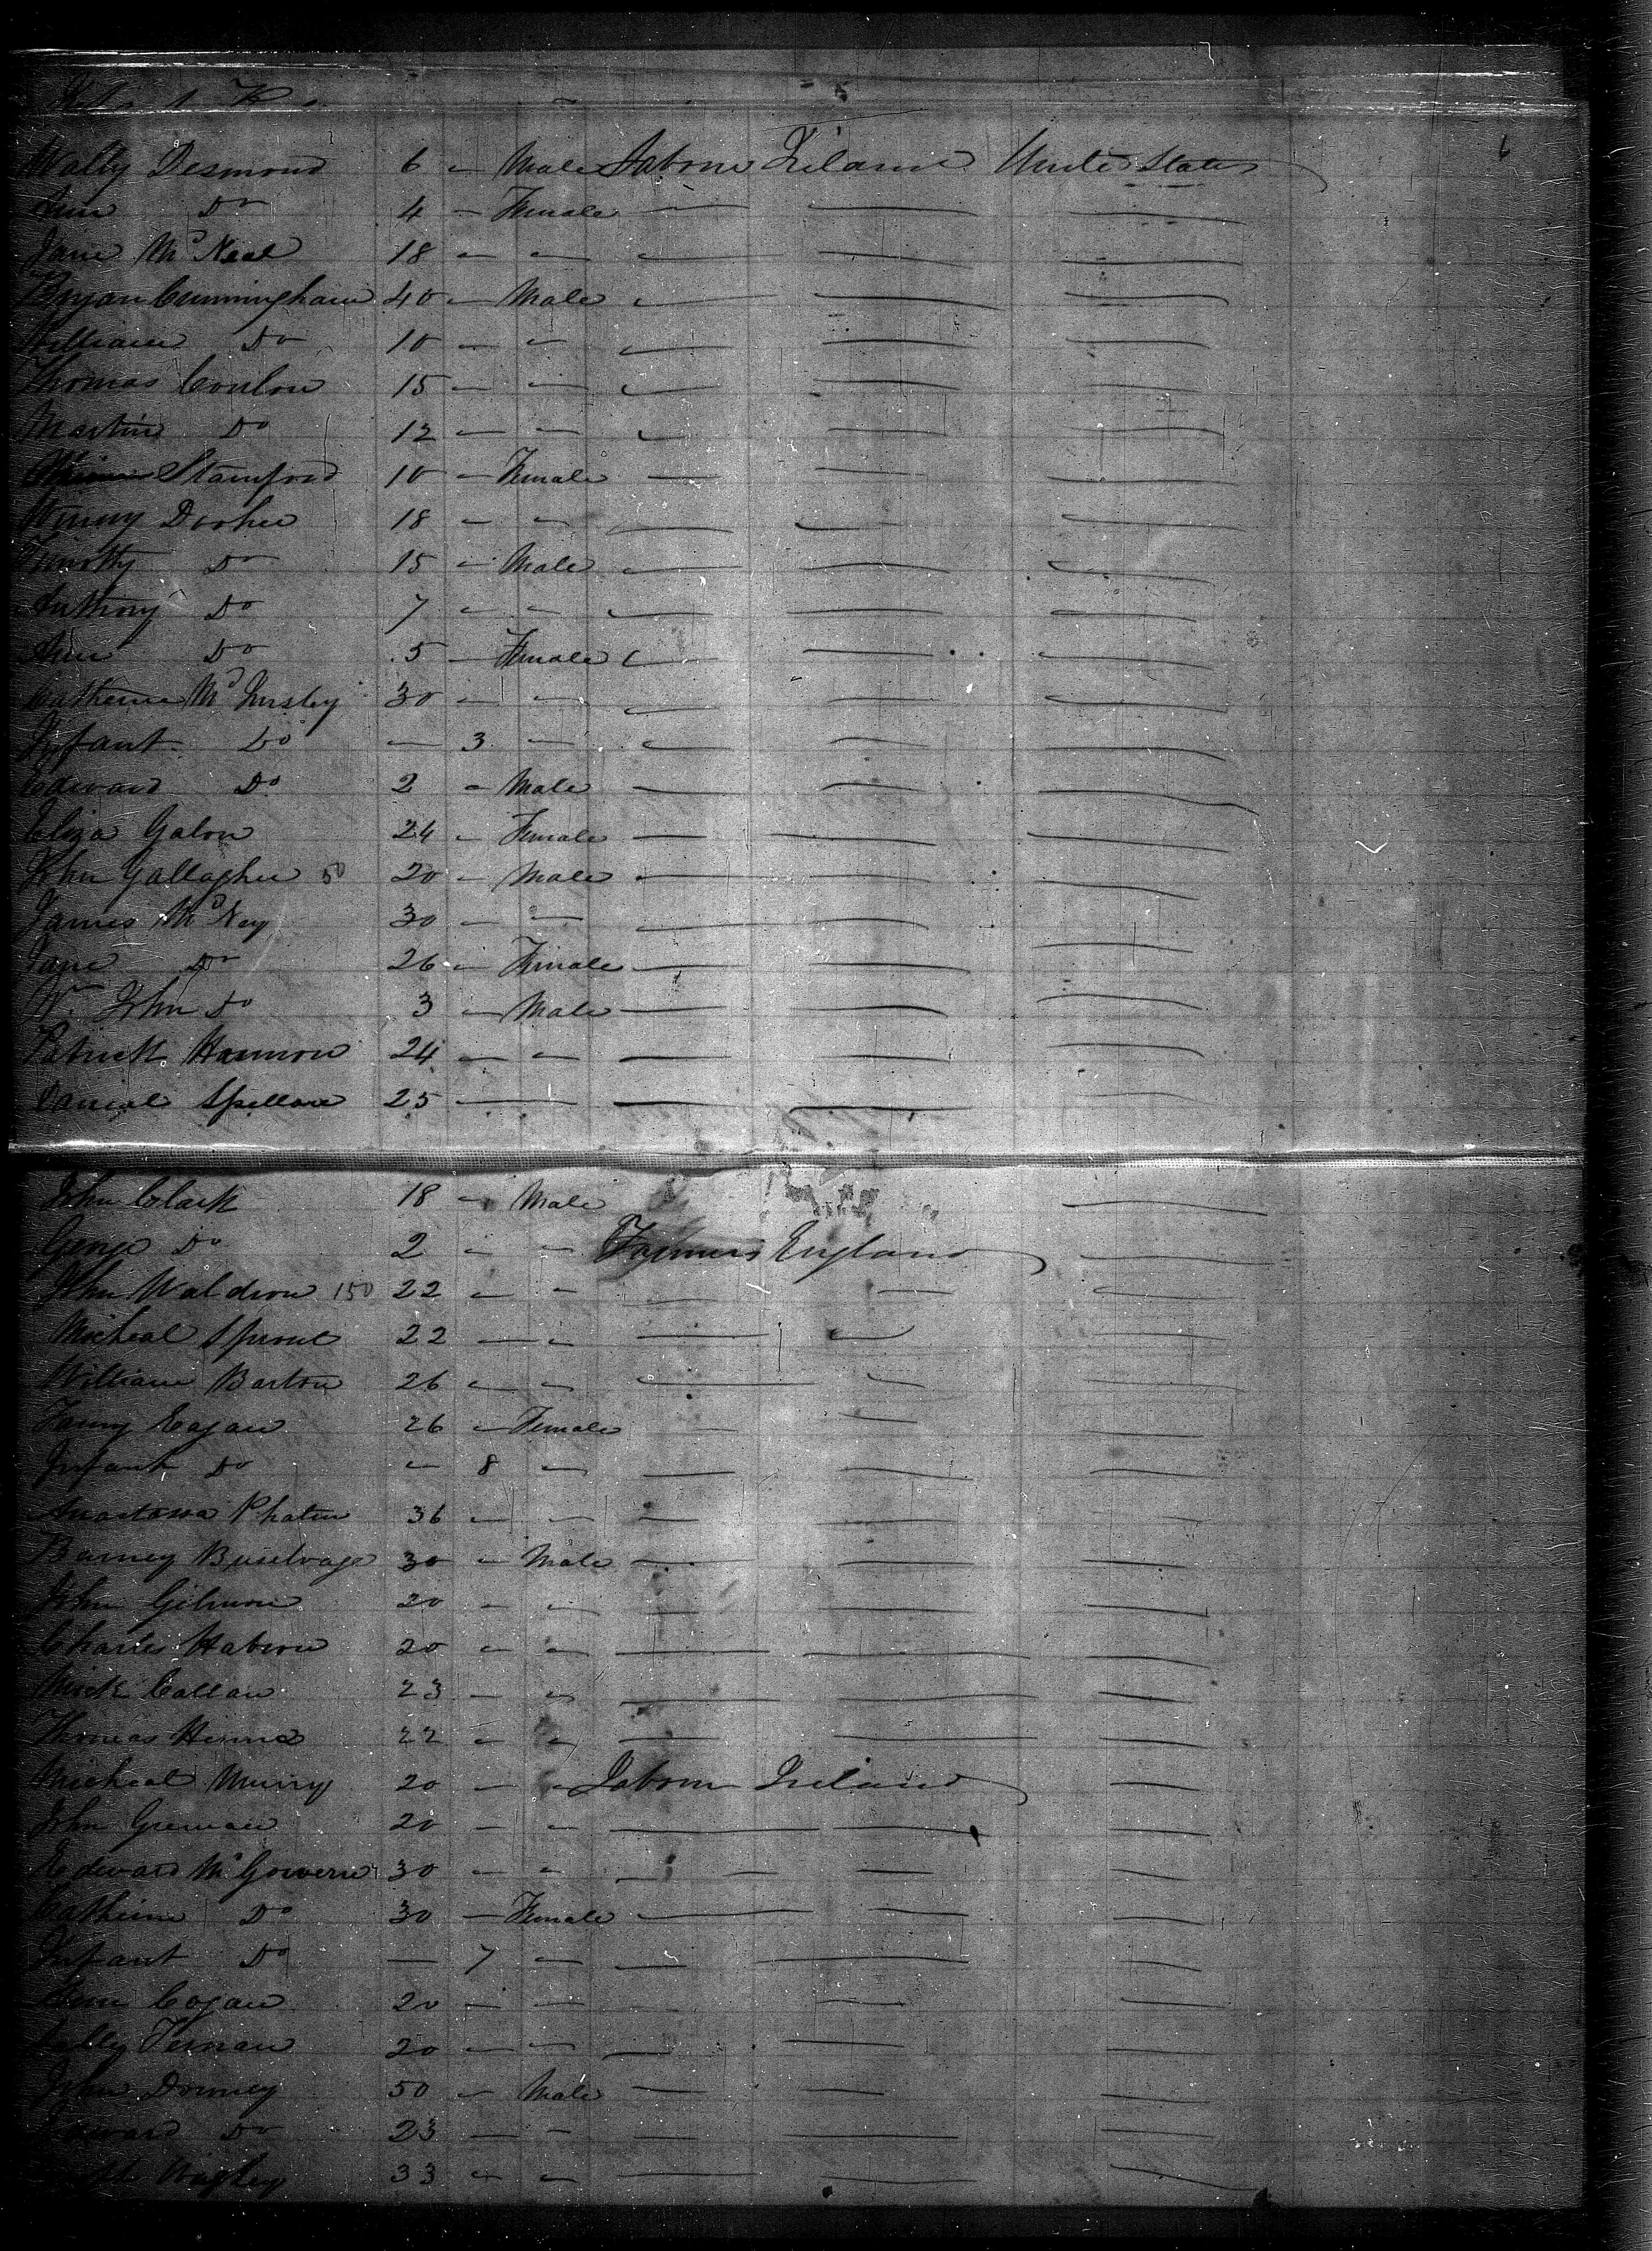 5
6
Watty Desmond 6 - Male Labour Ireland United States
Ann Do 4 - Female
Jane McNeal 18 - -
Bryan Cunningham 40 - Male
William Do 10 - -
Thomas Conlon 15 - -
Martin Do 12 - -
Stamford 10 - Female
Winny Doohee 18 - -
Timothy Do 15 - Male
Anthony Do 7 - -
Ann Do 5 - Female
Catherine Mc 30 - -
Infant Do - 3 -
Edward Do 2 - Male
Eliza Galon 24 - Female
John Gallagher 50 20 - Male
James McNey 30 - -
Jane Do 26 - Female
Wm John Do 3 - Male
Patrick Hannon 24 - -
Danial Spellane 25 -
John Clark 18 - Male
George Do 2 - - Farmers England
John Waldron 150 22 - -
Micheal Sproul 22 - -
William Barton 26 - -
Fanny Eagan 26 - Female
Infant Do - 8 -
36 - -
Barney 30 - Male
John Gilmore 20 - -
Charles 20 - -
Mick Callan 23 - -
Thomas 22 - -
Micheal Murry 20 - - Labour Ireland
John 20 - -
Edward McGovern 30 - -
Catherine Do 30 - Female
Infant Do - 7 -
Ann Cogan 20 - -
Sally Ternan 20 - -
John Downey 50 - Male
Edward Do 23 - -
33 - -